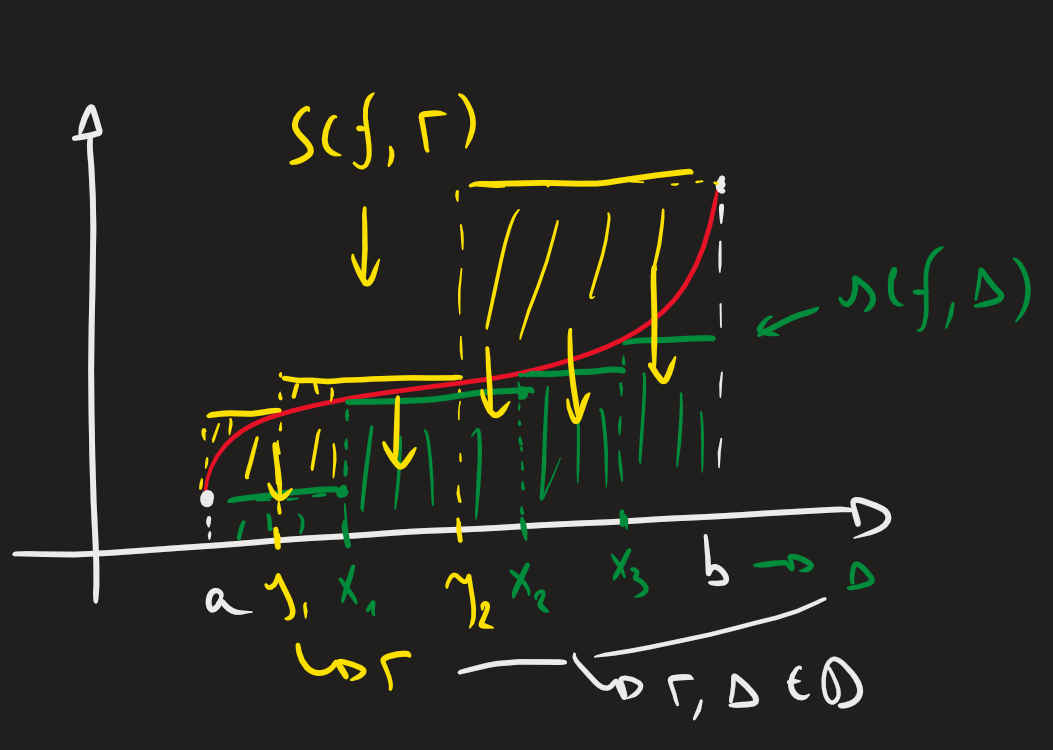 S(f, Γ)
s(f, Δ)
a y₁ x₁ y₂ x₂ x₃ b → Δ
↳ Γ
↳ Γ, Δ ∈ 𝒟